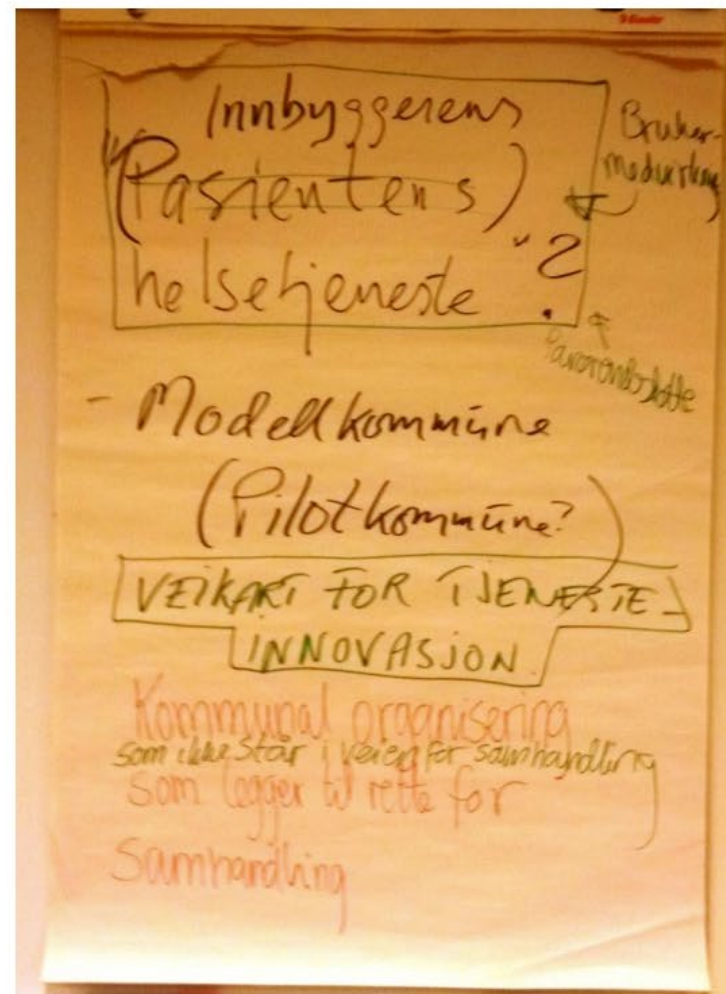 Innbyggerens
"(Pasientens)
helsetjeneste"?
Bruker-
medvirkning
Pårørendestøtte
- Modellkommune
(Pilotkommune?)
VEIKART FOR TJENESTE-
INNOVASJON.
Kommunal organisering
som ikke står i veien for samhandling
som legger til rette for
samhandling